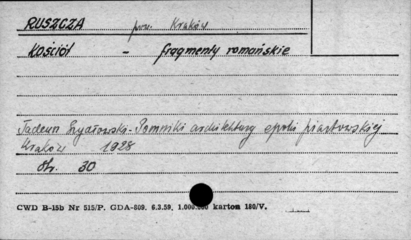 RUSZCZA pow. Kraków
Kościół - fragmenty romańskie
Tadeusz Szydłowski - Pomniki architektury epoki piastowskiej
Kraków 1928
str. 30
CWD B-15b Nr 515/P. GDA-809. 6.3.59. 1.000.000 karton 180/V.